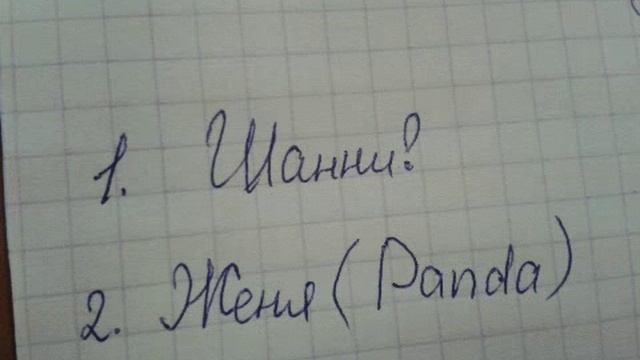 1. Шанни?
2. Женя (Panda)